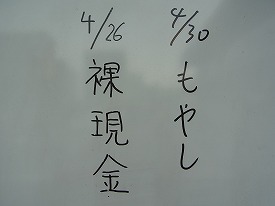 4/30
もやし
4/26
裸現金